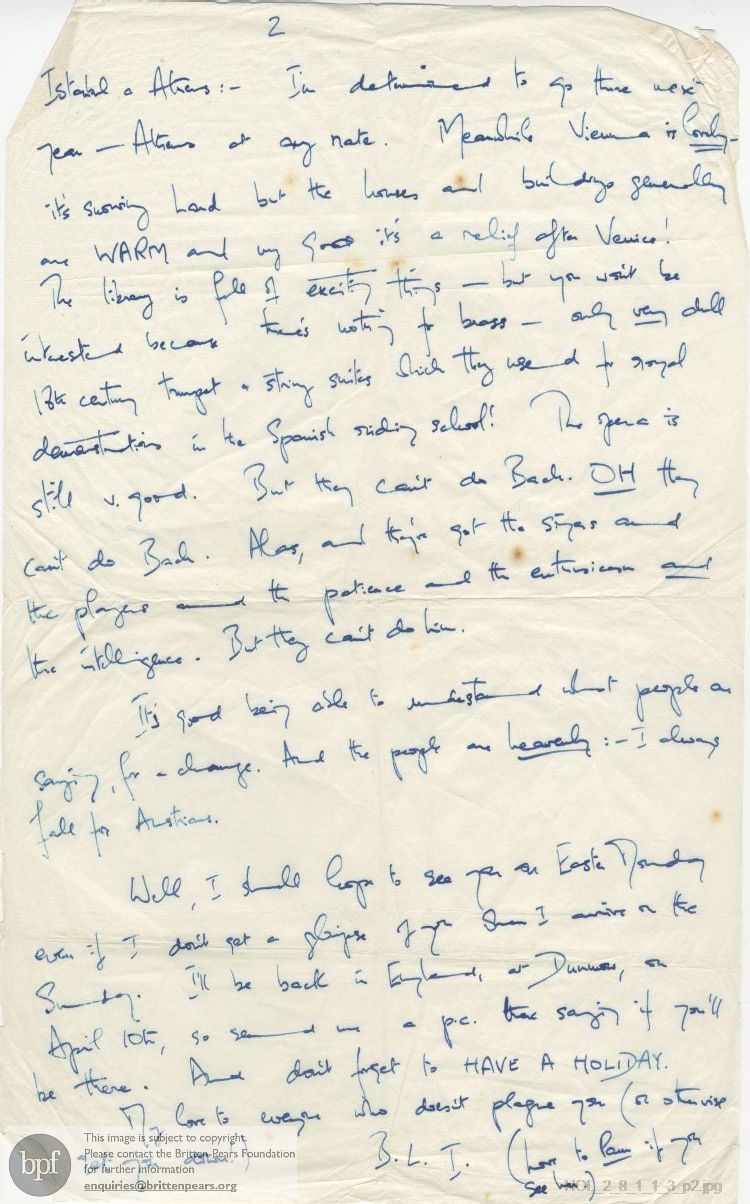 2
Istanbul & Athens :- I'm determined to go there next
year — Athens at any rate. Meanwhile Vienna is lovely —
it's snowing hard but the houses and buildings generally
are WARM and my good it's a relief after Venice!
The library is full of exciting things — but you won't be
interested because there's nothing for brass — only very dull
18th century trumpet & string suites which they used for royal
demonstrations in the Spanish riding school! The opera is
still v. good. But they can't do Bach. OH they
can't do Bach. Alas, and they've got the singers and
the players and the patience and the enthusiasm and
the intelligence. But they can't do him.
It's good being able to understand what people are
saying, for a change. And the people are heavenly :- I always
fall for Austrians.
Well, I shall hope to see you on Easter Monday
even if I don't get a glimpse of you when I arrive on the
Sunday. I'll be back in England, at Dunmow, on
April 10th, so send me a p.c. there saying if you'll
be there. And don't forget to HAVE A HOLIDAY.
My love to everyone who doesn't plague you (or otherwise
B.L.I. (love to Pam if you
see her)
bpf
This image is subject to copyright.
Please contact the Britten-Pears Foundation
for further information
enquiries@brittenpears.org
HOL_2_8_1_1_3_p2.jpg